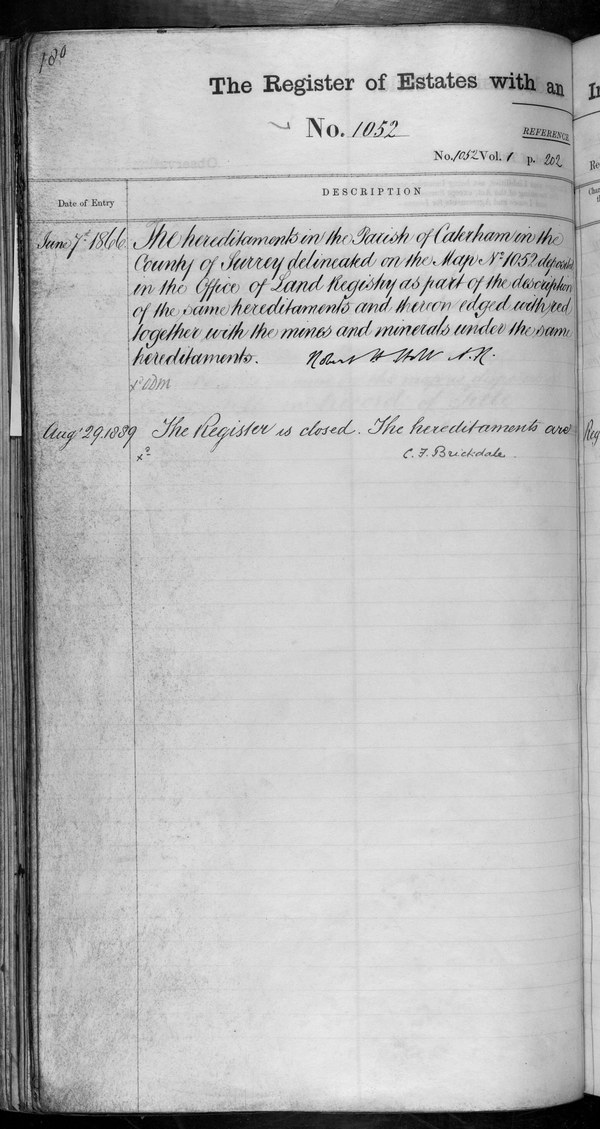 180
The Register of Estates with an
No. 1052
REFERENCE
No. 1052 Vol. 1 p. 202
Date of Entry
DESCRIPTION
June 7th 1866. The hereditaments in the Parish of Caterham in the
County of Surrey delineated on the Map No. 1052 deposited
in the Office of Land Registry as part of the description
of the same hereditaments and thereon edged with red
together with the mines and minerals under the same
hereditaments. Robert H Holt A.R.
Augt 29. 1889 The Register is closed. The hereditaments are
C. F. Brickdale.
In
Re
Reg